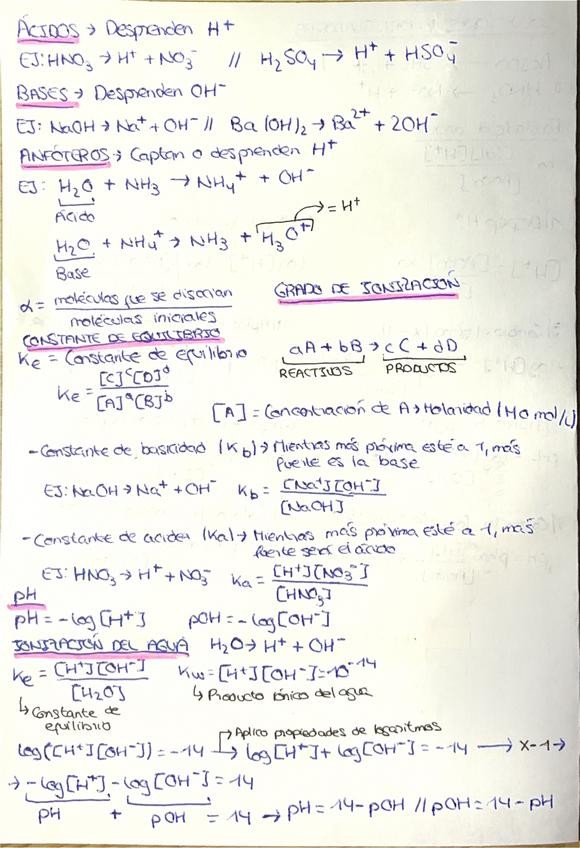 ÁCIDOS → Desprenden H⁺
EJ: HNO₃ → H⁺ + NO₃⁻ // H₂SO₄ → H⁺ + HSO₄⁻
BASES → Desprenden OH⁻
EJ: NaOH → Na⁺ + OH⁻ // Ba(OH)₂ → Ba²⁺ + 2OH⁻
ANFÓTEROS → Captan o desprenden H⁺
EJ: H₂O + NH₃ → NH₄⁺ + OH⁻
Ácido
→ = H⁺
H₂O + NH₄⁺ → NH₃ + H₃O⁺
Base
GRADO DE IONIZACIÓN
α = moléculas que se disocian / moléculas iniciales
CONSTANTE DE EQUILIBRIO
Ke = Constante de equilibrio
aA + bB → cC + dD
REACTIVOS PRODUCTOS
Ke = [C]ᶜ[D]ᵈ / [A]ᵃ[B]ᵇ
[A] = Concentración de A → Molaridad (M o mol/L)
- Constante de basicidad (Kb) → Mientras más próxima esté a 1, más
fuerte es la base
EJ: NaOH → Na⁺ + OH⁻ Kb = [Na⁺][OH⁻] / [NaOH]
- Constante de acidez (Ka) → Mientras más próxima esté a 1, más
fuerte será el ácido
EJ: HNO₃ → H⁺ + NO₃⁻ Ka = [H⁺][NO₃⁻] / [HNO₃]
pH
pH = -log[H⁺] pOH = -log[OH⁻]
IONIZACIÓN DEL AGUA H₂O → H⁺ + OH⁻
Ke = [H⁺][OH⁻] / [H₂O] Kw = [H⁺][OH⁻] = 10⁻¹⁴
↳ Constante de equilibrio ↳ Producto iónico del agua
→ Aplico propiedades de logaritmos
log([H⁺][OH⁻]) = -14 → log[H⁺] + log[OH⁻] = -14 → x-1 →
→ -log[H⁺] - log[OH⁻] = 14
pH + pOH = 14 → pH = 14 - pOH // pOH = 14 - pH